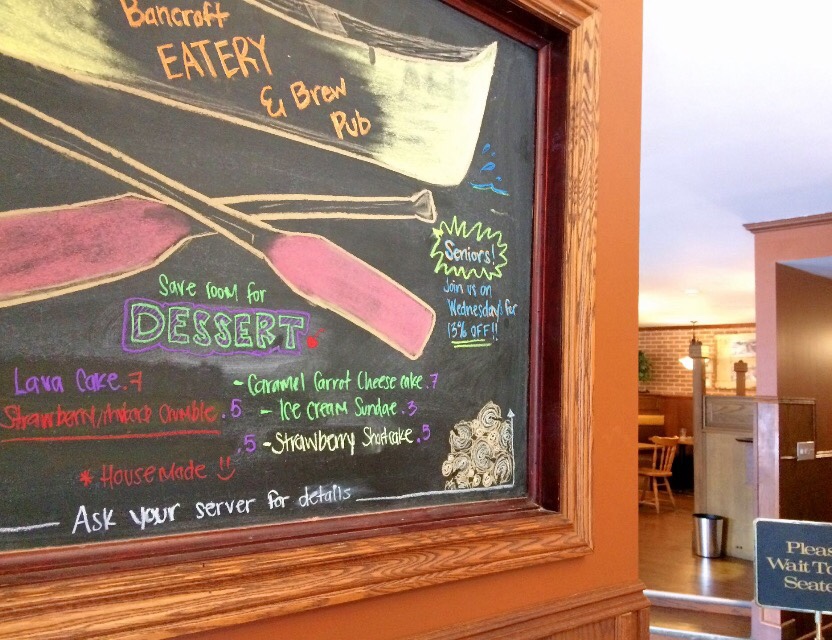 Bancroft
EATERY
& Brew
Pub
Seniors!
Join us on
Wednesday's for
15% OFF!!
Save room for
DESSERT
Lava Cake .7
Strawberry/rhubarb Crumble .5
.5
- Caramel Carrot Cheesecake .7
- Ice Cream Sundae .3
- Strawberry Shortcake .5
* House Made
Ask your server for details
Pleas
Wait To
Seate